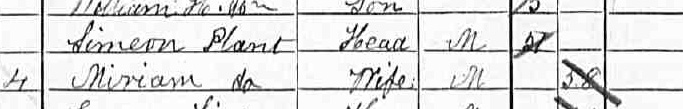 William Son 13
Simeon Plant Head M 57
4 Miriam do Wife M 58